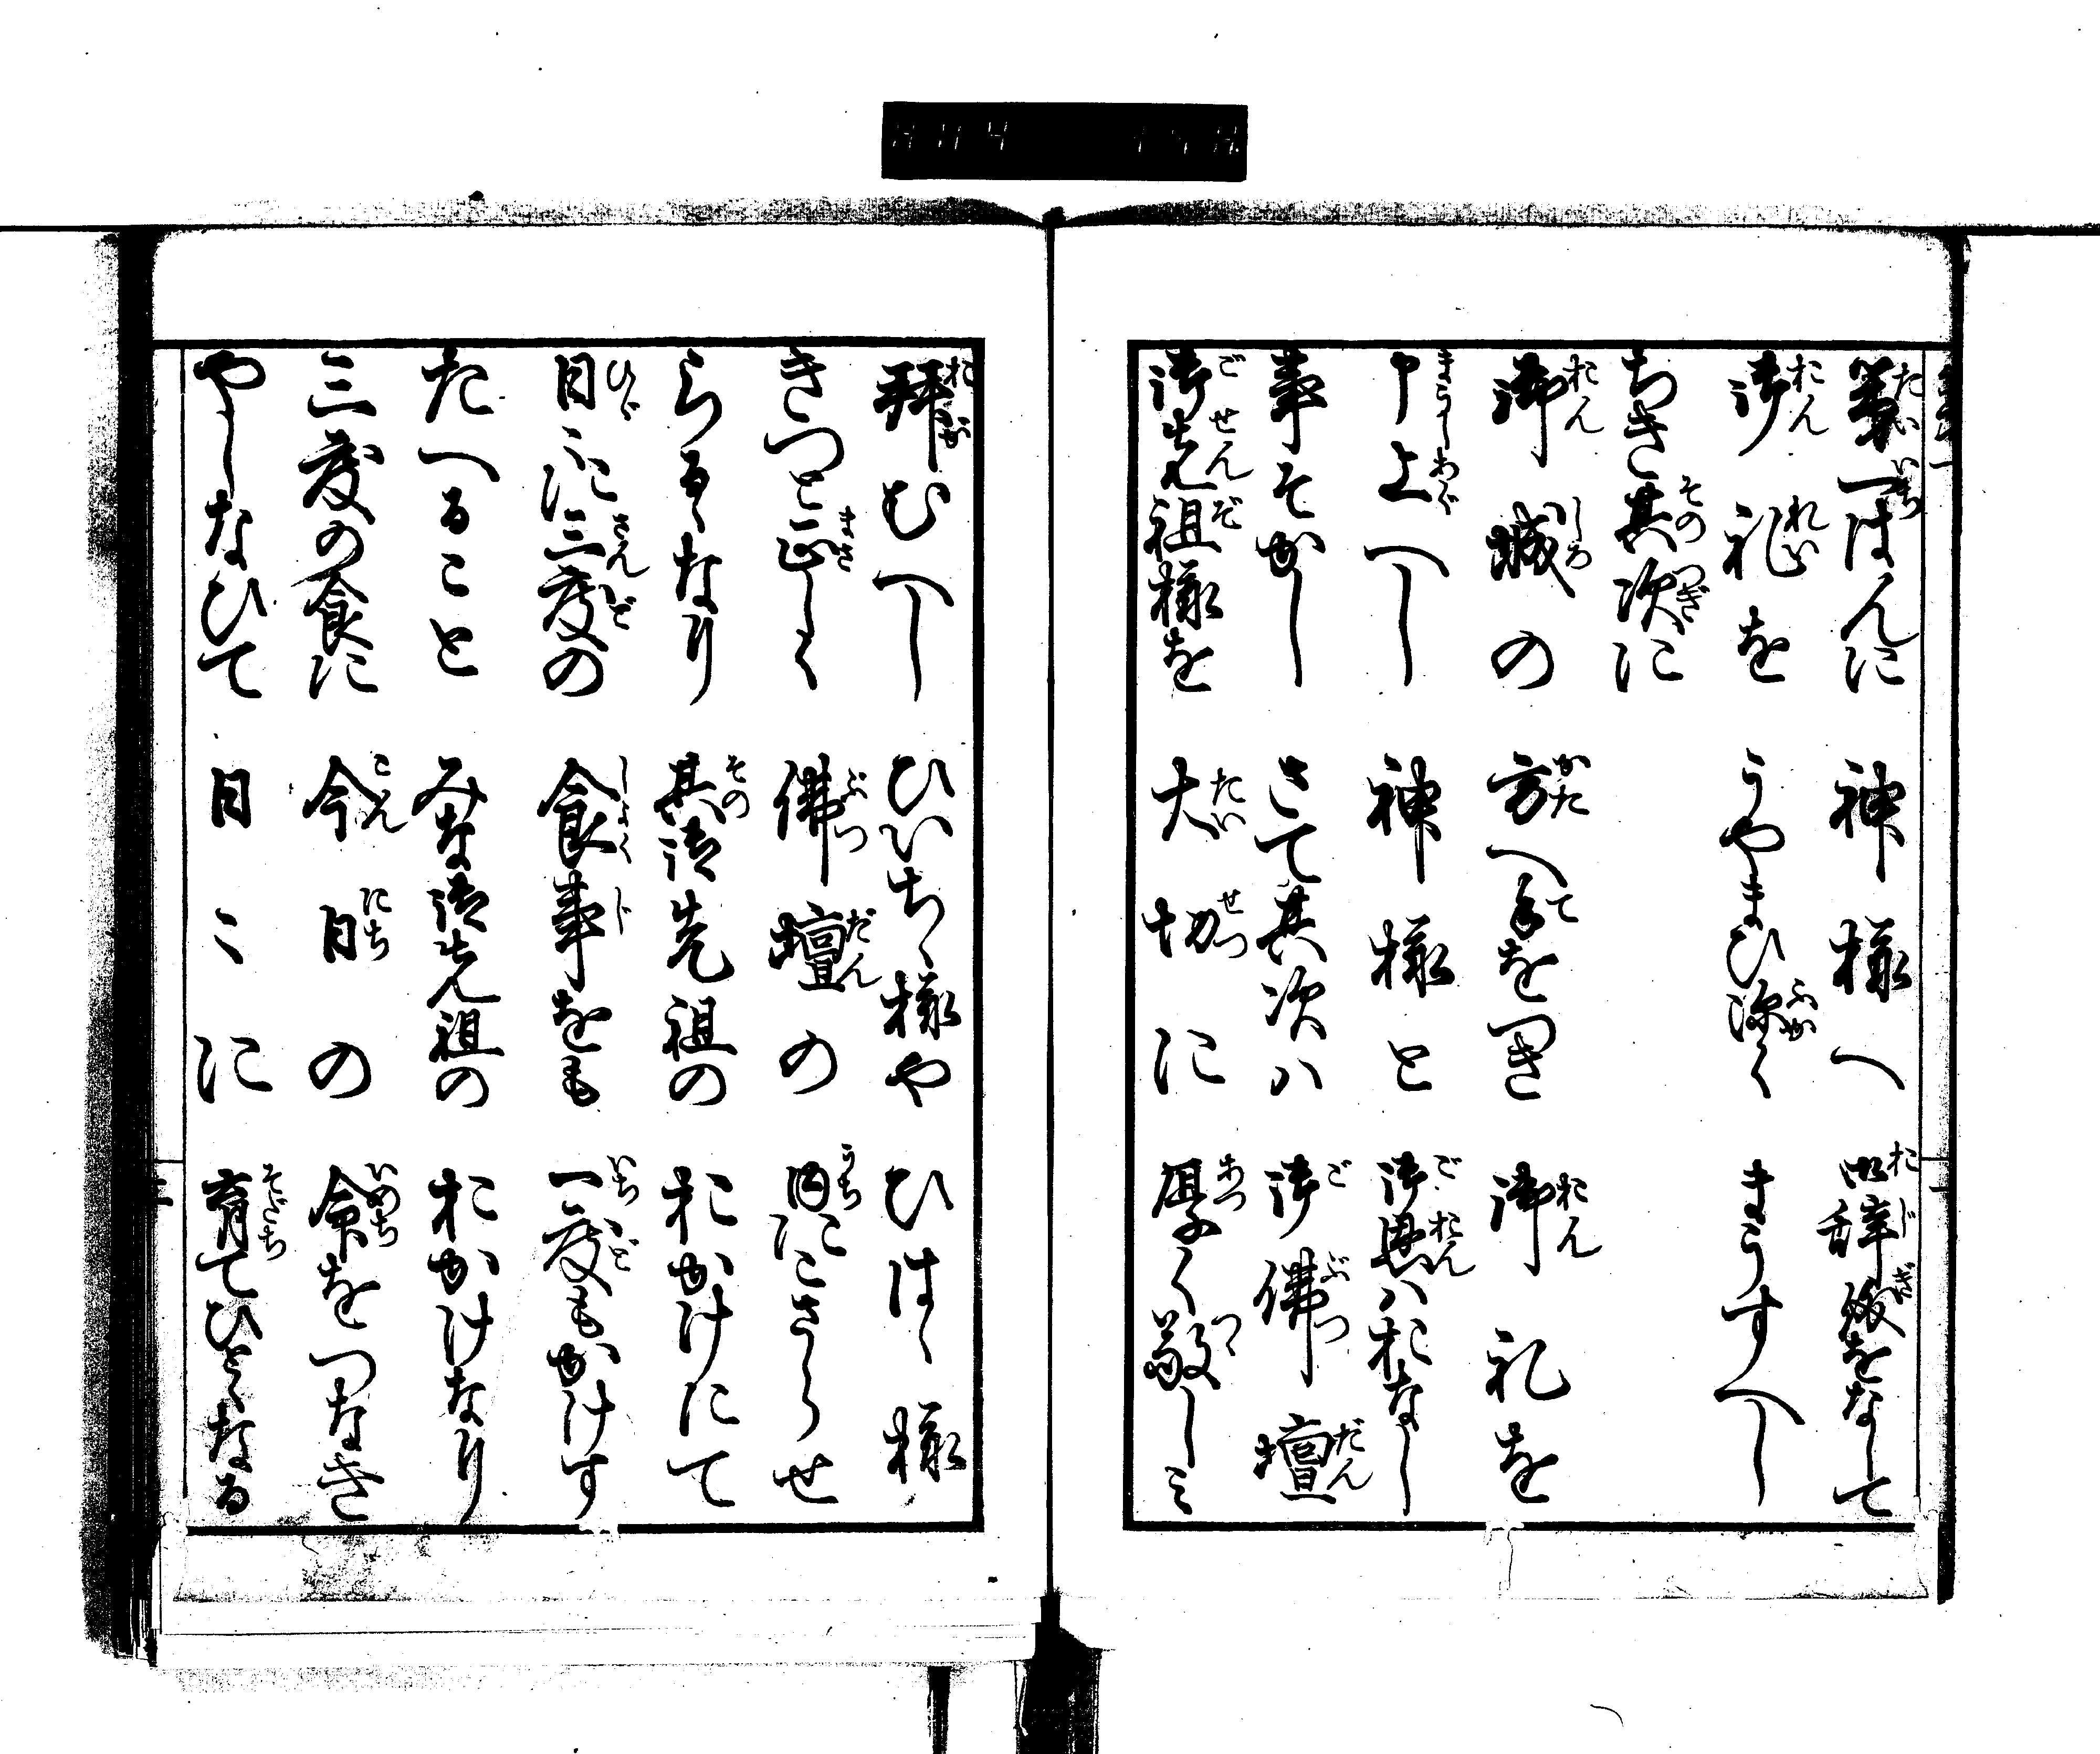 第一はんに　神様へ　御辞儀をなして
御礼を　うやまひ深く　まうすへし
ちき其次に
御城の　方へ手をつき　御礼を
申上へし　神様と　御恩ハおなし
事そかし　さて其次ハ　御佛壇
御先祖様を　大切に　厚く敬しミ
拜むへし　ひいちゝ様や　ひはゝ様
きつと正しく　佛壇の　内にこさらせ
らるゝなり　其御先祖の　おかけにて
日ゝに三度の　食事をも　一度もかけす
たへること　みな御先祖の　おかけなり
三度の食に　今日の　命をつなき
やしなひて　日ミに　育てひとゝなる